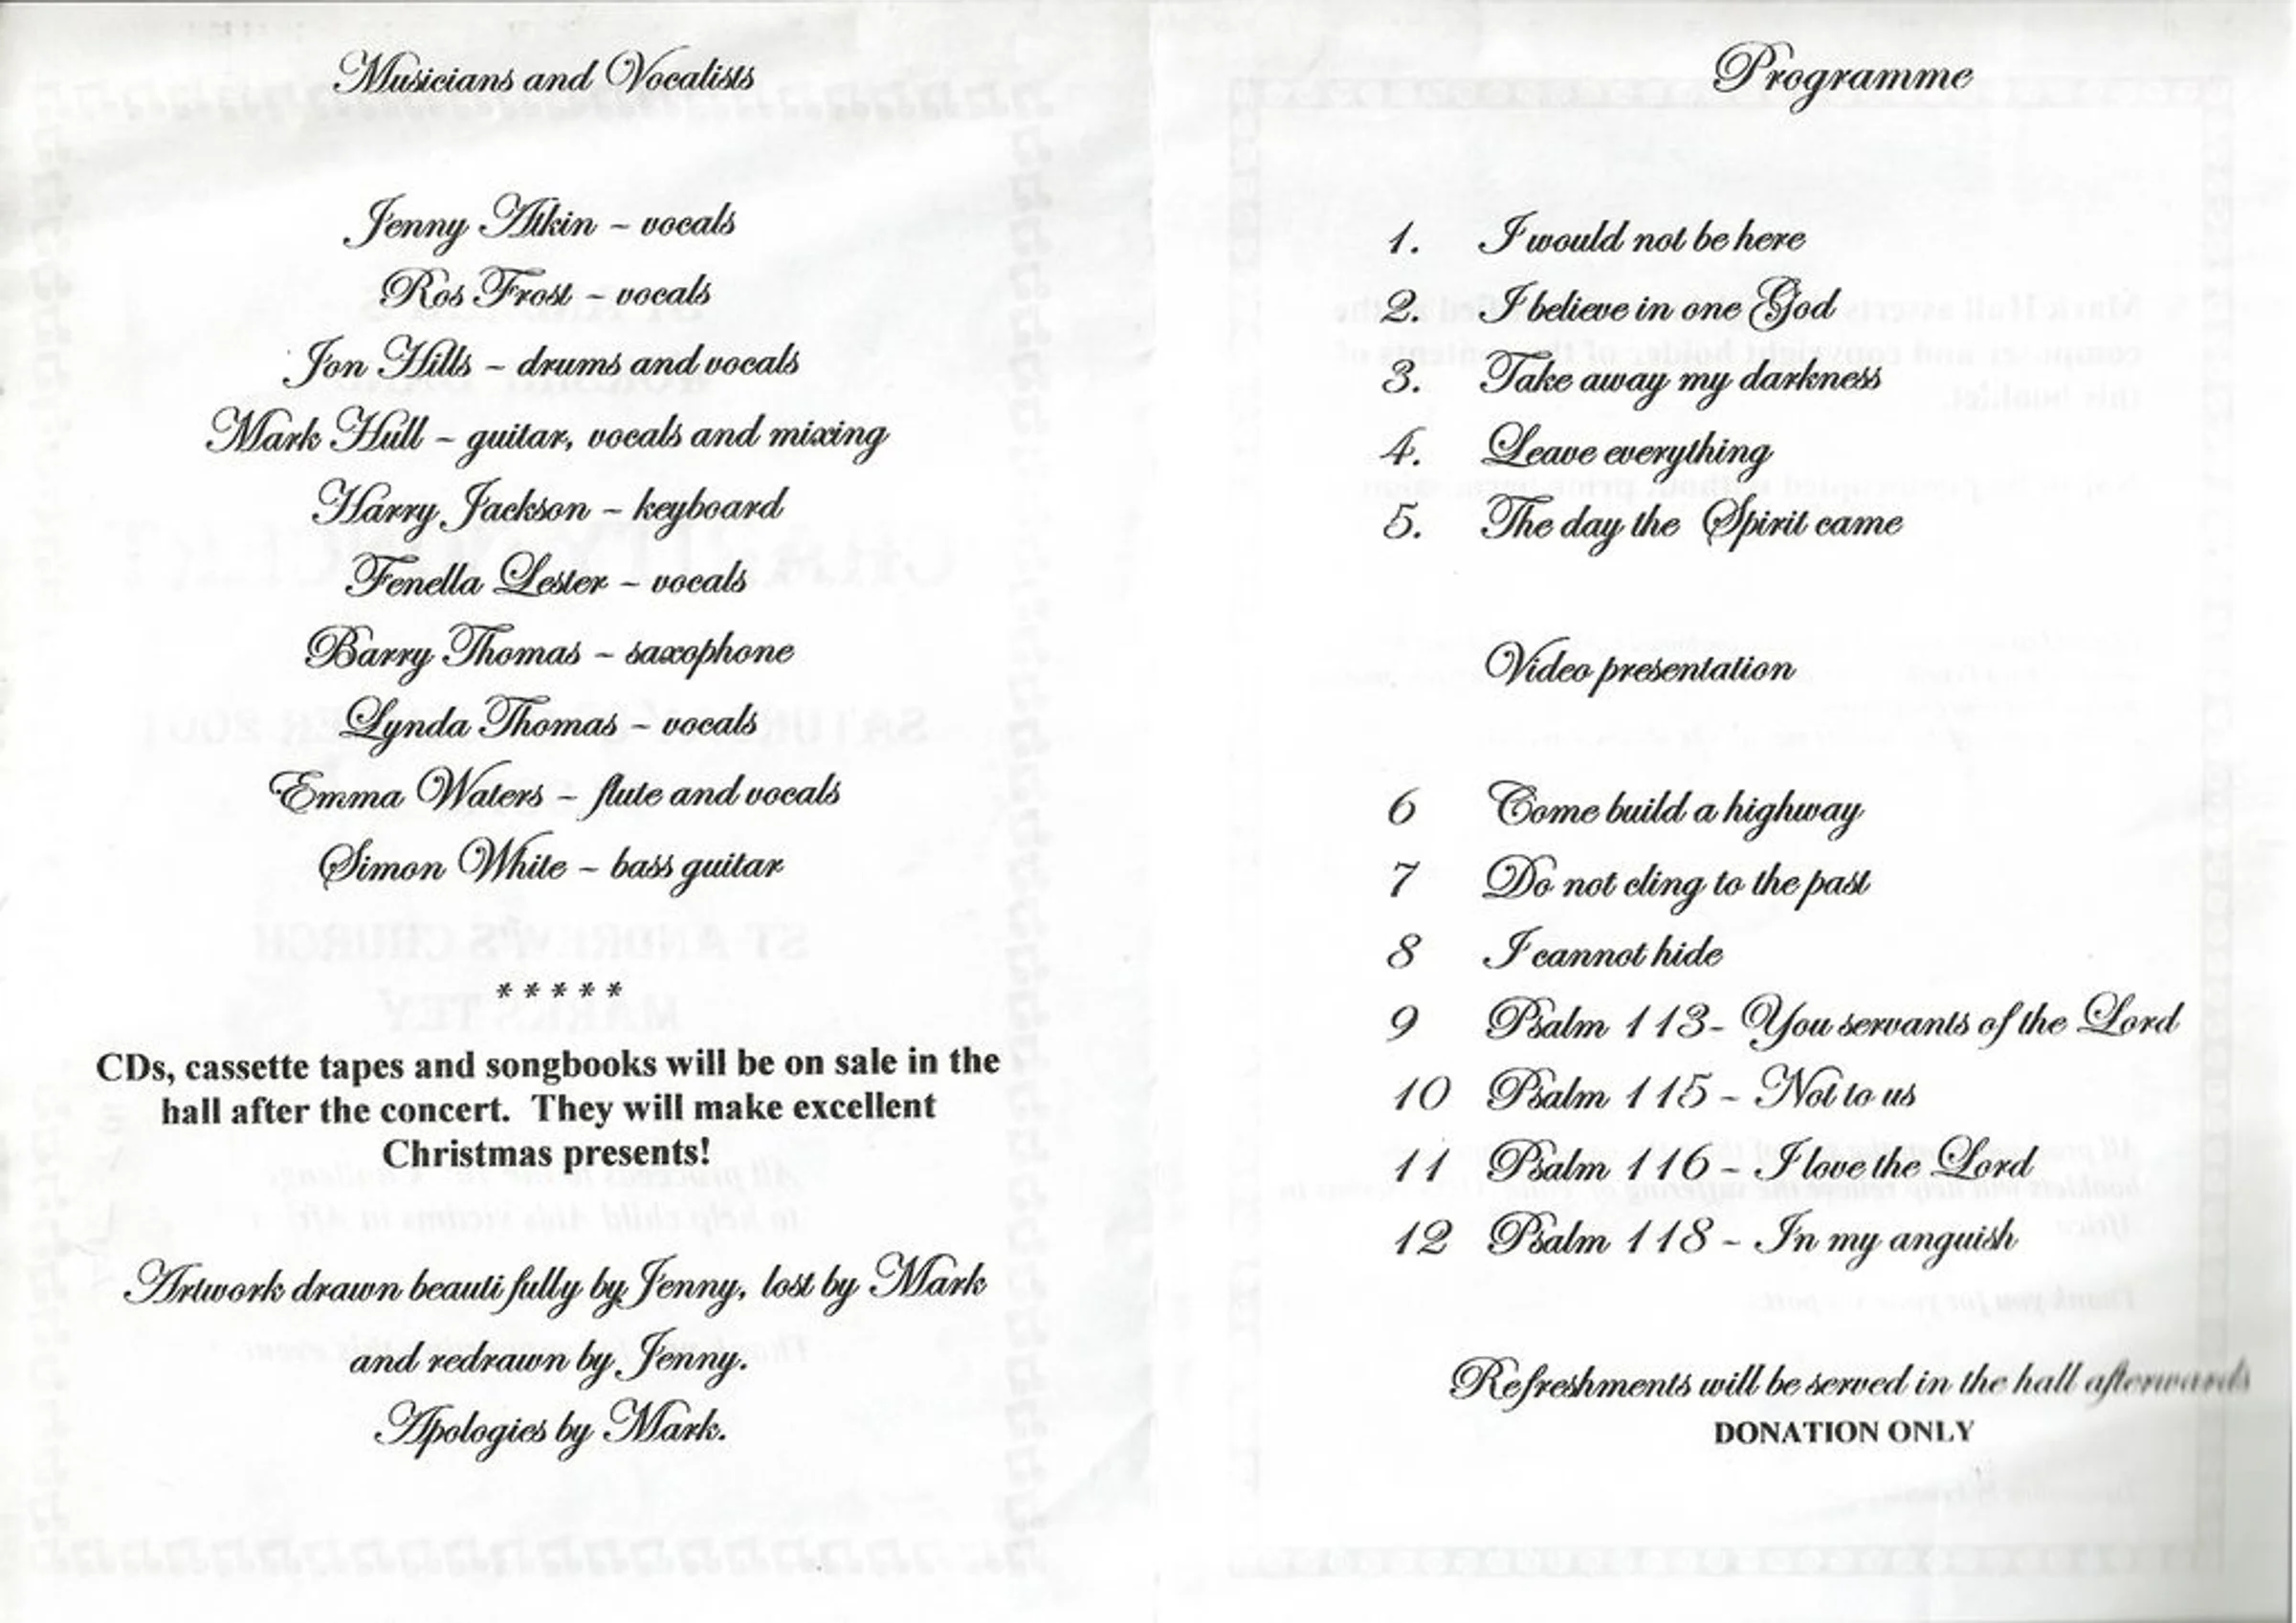 Musicians and Vocalists
Jenny Atkin ~ vocals
Ros Frost ~ vocals
Jon Hills ~ drums and vocals
Mark Hull ~ guitar, vocals and mixing
Harry Jackson ~ keyboard
Fenella Lester ~ vocals
Barry Thomas ~ saxophone
Lynda Thomas ~ vocals
Emma Waters ~ flute and vocals
Simon White ~ bass guitar
* * * * *
CDs, cassette tapes and songbooks will be on sale in the
hall after the concert. They will make excellent
Christmas presents!
Artwork drawn beauti fully by Jenny, lost by Mark
and redrawn by Jenny.
Apologies by Mark.
Programme
1. I would not be here
2. I believe in one God
3. Take away my darkness
4. Leave everything
5. The day the Spirit came
Video presentation
6 Come build a highway
7 Do not cling to the past
8 I cannot hide
9 Psalm 113- You servants of the Lord
10 Psalm 115 ~ Not to us
11 Psalm 116 ~ I love the Lord
12 Psalm 118 ~ In my anguish
Refreshments will be served in the hall afterwards
DONATION ONLY